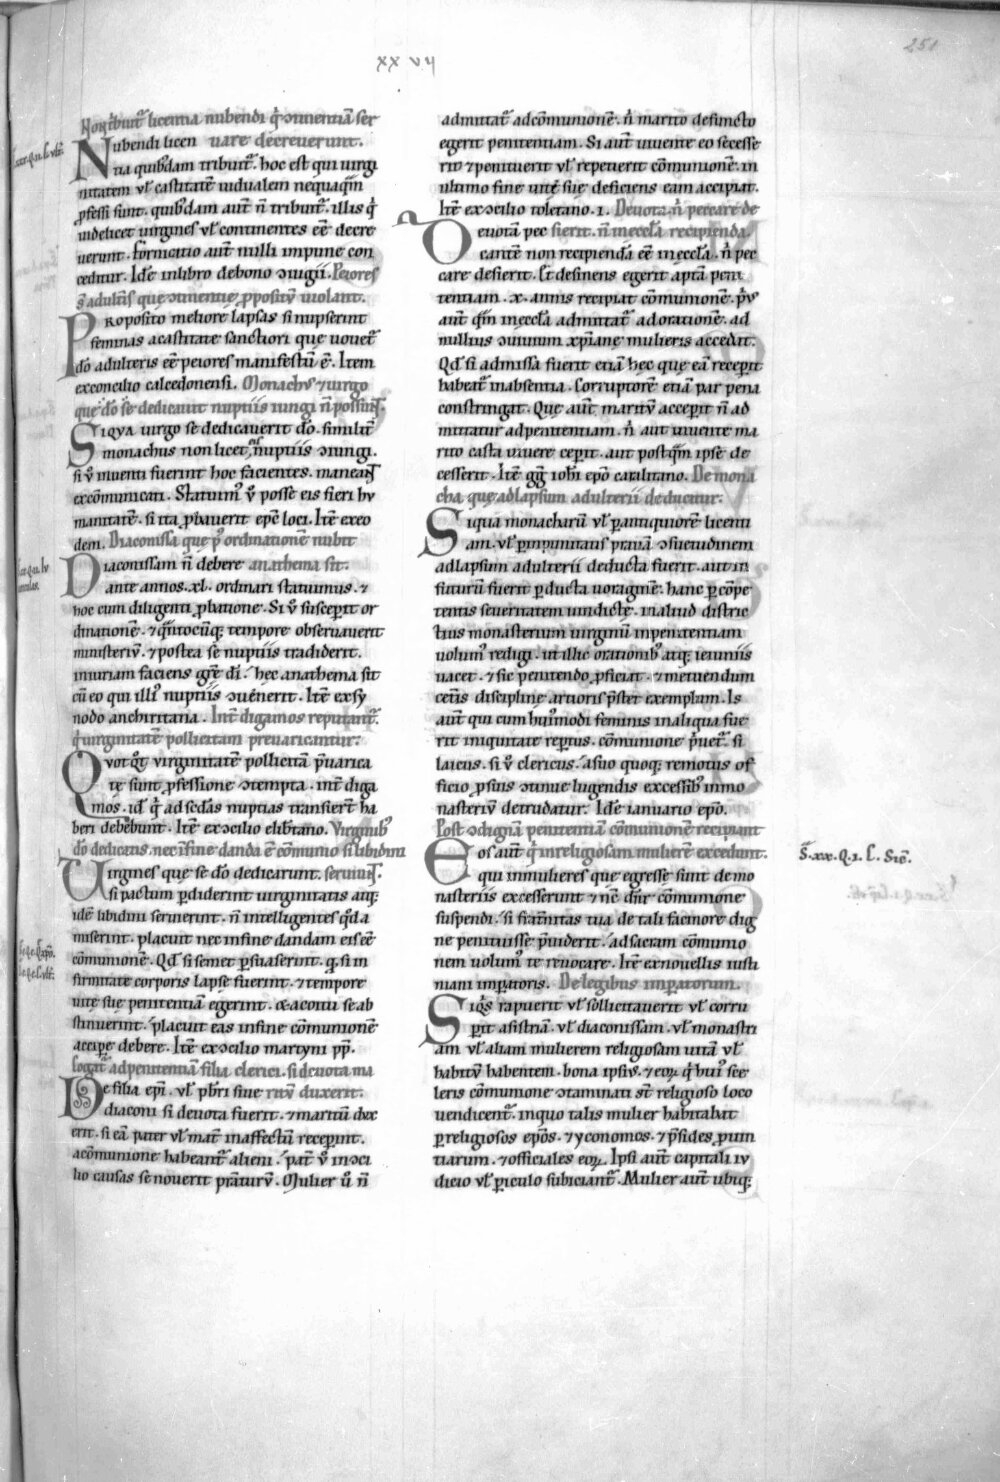 251
xx vij
Non tribuit᷑ licentia nubendi q̇ ↄtinentiā ser
Nubendi licen uare decreuerunt.
tia quibusdam tribuit᷑. hoc est qui uirgi
nitatem vl̓ castitatē uidualem nequaq̄m
ꝓfessi sunt. quibusdam aut̄ n̄ tribunt᷑. illis q̇
uidelicet uirgines vl̓ continentes eē decre
uerunt. fornicatio aut̄ nulli impune con
ceditur. Idē inlibro debono ↄiugii. Peiores
s̄ adult̄is quę ↄtinentię ꝓpositū uiolant.
Proposito meliore lapsas si nupserint
feminas acastitate sanctiori que uouet᷑
dō adulteris eē peiores manifestū ē. Item
exconcilio calcedonensi. Monachus ⁊uirgo
que dō se dedicauit nuptiis iungi n̄ possunt.
Siqua uirgo se dedicauerit dō. similit᷑
monachus non licet nuptiis ↄiungi.
si ū̊ inuenti fuerint hoc facientes. maneant
excōmunicati. Statuim᷒ ū̊ posse eis fieri hu
manitatē. si ita ꝓbauerit epc̄ loci. Itē exeo
dem. Diaconissa que p᷒ ordinationē nubit
Diaconissam n̄ debere anathema sit.
ante annos .xl. ordinari statuimus. ⁊
hoc cum diligenti ꝓbatione. Si ū̊ susceperit or
dinationē. ⁊ q̄ntocūq; tempore obseruauerit
ministeriū. ⁊postea se nuptiis tradiderit.
iniuriam faciens gr̄e dī. hec anathema sit
cū eo qui illi᷒ nuptiis ↄuēnerit. Itē exsy
nodo anchiritana. Int̄ digamos reputant᷑.
q̇ uirginitatē pollicitam preuaricantur.
Quotq̇t uirginitatē pollicitā p̄uarica
tę sunt ꝓfessione ↄtempta. int̄ diga
mos. id᷒ q̇ ad scd̄as nuptias transierūt ha
beri debebunt. Itē exↄcilio elibtano. Virginib᷒
dō dedicatis. nec īfine danda ē cōmunio si libidini
Uirgines que se dō dedicarunt. seruiunt.
si pactum ꝑdiderint uirginitatis atq;
idē libidini seruierint. n̄ intelligentes q̇d a
miserint. placuit nec infine dandam eis eē
cōmunionē. Qd̄ si semet ꝑsuaserint. q̇ si in
firmitate corporis lapse fuerint. ⁊ tempore
uitę suę penitentiā egerint. & acoitu se ab
stinuerint. placuit eas infine cōmunionē
accipe debere. Itē exↄcilio martyni pp̄.
Rogat᷑ adpenitentiam filia clerici. si deuota ma
De filia epī. vl̓ pbr̄i siue ritū duxerit.
diaconi si deuota fuerit. ⁊ maritū dux
erit. si eā pater vl̓ mat᷑ inaffectū receperint.
acōmunione habeant᷑ alieni. pat᷑ ū̊ inↄci
lio causas se nouerit p̄staturū. Mulier ū̊ n̄
admittat᷑ adcōmunionē. n̄ marito defuncto
egerit penitentiam. Si aut̄ uiuente eo secesse
rit ⁊penituerit vl̓ repetierit cōmunionē. in
ultimo fine uitę suę deficiens eam accipiat.
Itē exↄcilio toletano .1. Deuota n̄ peccare de
Deuota pec sierit. n̄ inęccl̄a recipienda.
cantē non recipiendā eē inęccl̄a. n̄ pec
care desierit. Et desinens egerit aptā peni
tentiam .x. annis recipiat cōmunionē. p̄us
aut̄ q̄m inęccl̄a admittat᷑ ad orationē. ad
nullius ↄuiuium xp̄iane mulieris accedat.
Qd̄ si admissa fuerit etiā hęc que eā receperit
habeat᷑ inabsentia. Corruptorē etiā par pena
constringat. Que aut̄ maritū acceperit n̄ ad
mittatur adpenitentiam. n̄ aut uiuente ma
rito casta uiuere cepit. aut postq̄m ipse de
cesserit. Itē gg̅ iohī epō calitano. De mona
cha que adlapsum adulterii deducitur.
Siqua monacharū vl̓ ꝑantiquiorē licenti
am. vl̓ ꝑimpunitatis prauā ↄsuetudinem
adlapsum adulterii deducta fuerit. aut in
futurū fuerit ꝑducta uoraginē. hanc ꝑcōpe
tentis seueritatem uindictę. inaliud distric
tius monasterium uirginū inpenitentiam
uolum᷒ redigi. ut illic orationib᷒ atq; ieiuniis
uacet. ⁊ sic penitendo ꝓficiat. ⁊ metuendum
cet̄is discipline artioris p̄stet exemplum. Is
aut̄ qui cum hui᷒modi feminis inaliqua fue
rit iniquitate reptus. cōmunione p̄uet᷑. si
laicus. si ū̊ clericus. asuo quoq; remotus of
ficio ꝓsuis ↄtinue lugendis excessib᷒ inmo
nasteriū detrudatur. Idē ianuario epō.
Post ↄdignā penitentiā cōmunionē recipiant
Eos aut̄ q̇ inreligiosam mulierē excedunt.
qui inmulieres que egresse sunt de mo
nasteriis excesserunt ⁊ nc̄ dn̄r cōmunione
suspendi. si frat̄nitas tua de tali facinore dig
ne penituisse p̄uiderit. adsacram cōmunio
nem uolum᷒ te reuocare. Itē exnouellis iusti
niani imꝑatoris. De legibus imꝑatorum.
Siq̇s rapuerit vl̓ sollicitauerit vl̓ corru
perit asistriā. vl̓ diaconissam. vl̓ monastri
am vl̓ aliam mulierem religiosam uitā vl̓
habitū habentem. bona ipsius. ⁊ eoꝝ q̇ hui᷒ sce
leris cōmunione ↄtaminati st̄ religioso loco
uendicent᷑. inquo talis mulier habitabat
ꝑreligiosos epōs. ⁊yconomos. ⁊p̄sides ꝓuin
tiarum. ⁊officiales eoꝝ. Ipsi aut̄ capitali iu
dicio vl̓ ꝑiculo subiciant᷑. Mulier aut̄ ubiq;
S̄. xx. Q. 1. C̄. Sic̄.